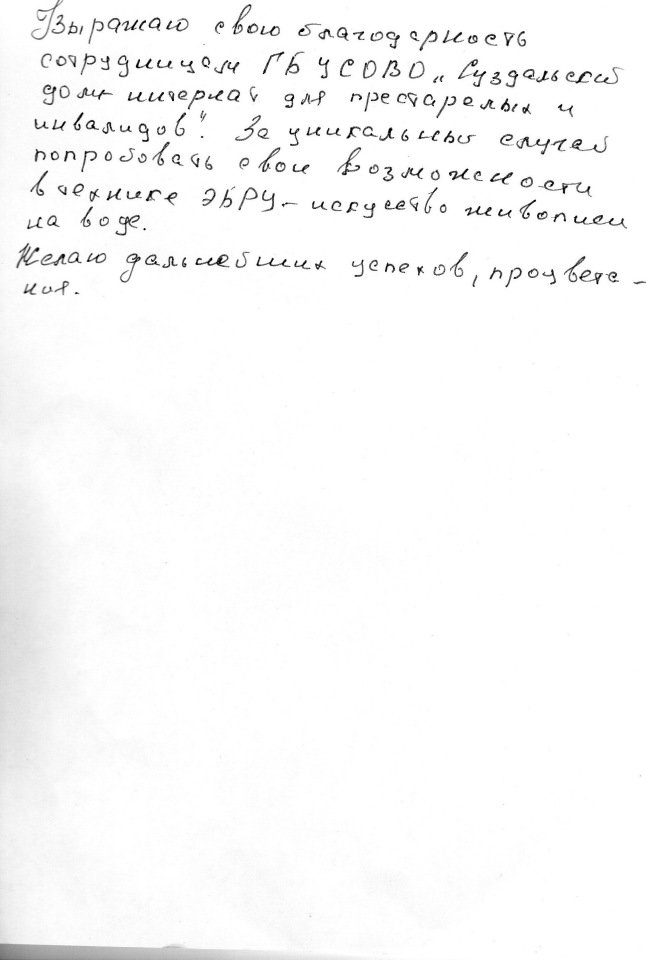 Выражаю свою благодарность
сотрудницам ГБУСОВО „Суздальский
дом-интернат для престарелых и
инвалидов". За уникальный случай
попробовать свои возможности
в технике ЭБРУ – искусство живописи
на воде.
Желаю дальнейших успехов, процвета-
ния.